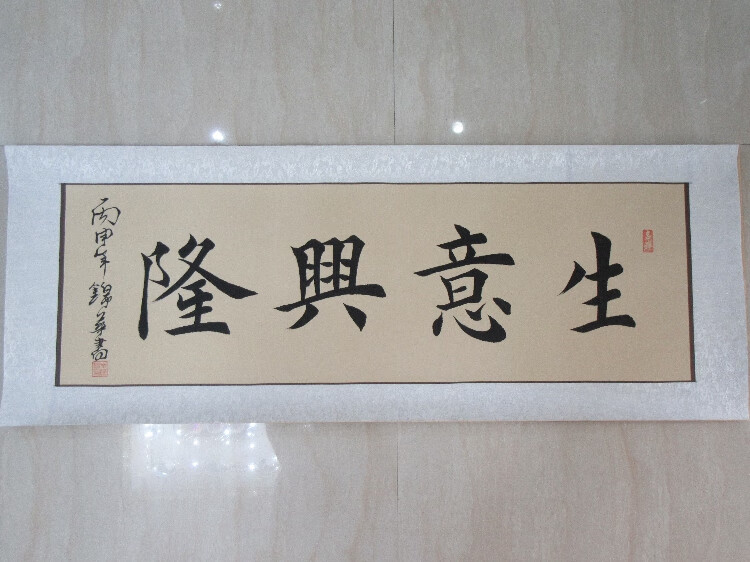 生意興隆
丙申年錦華書